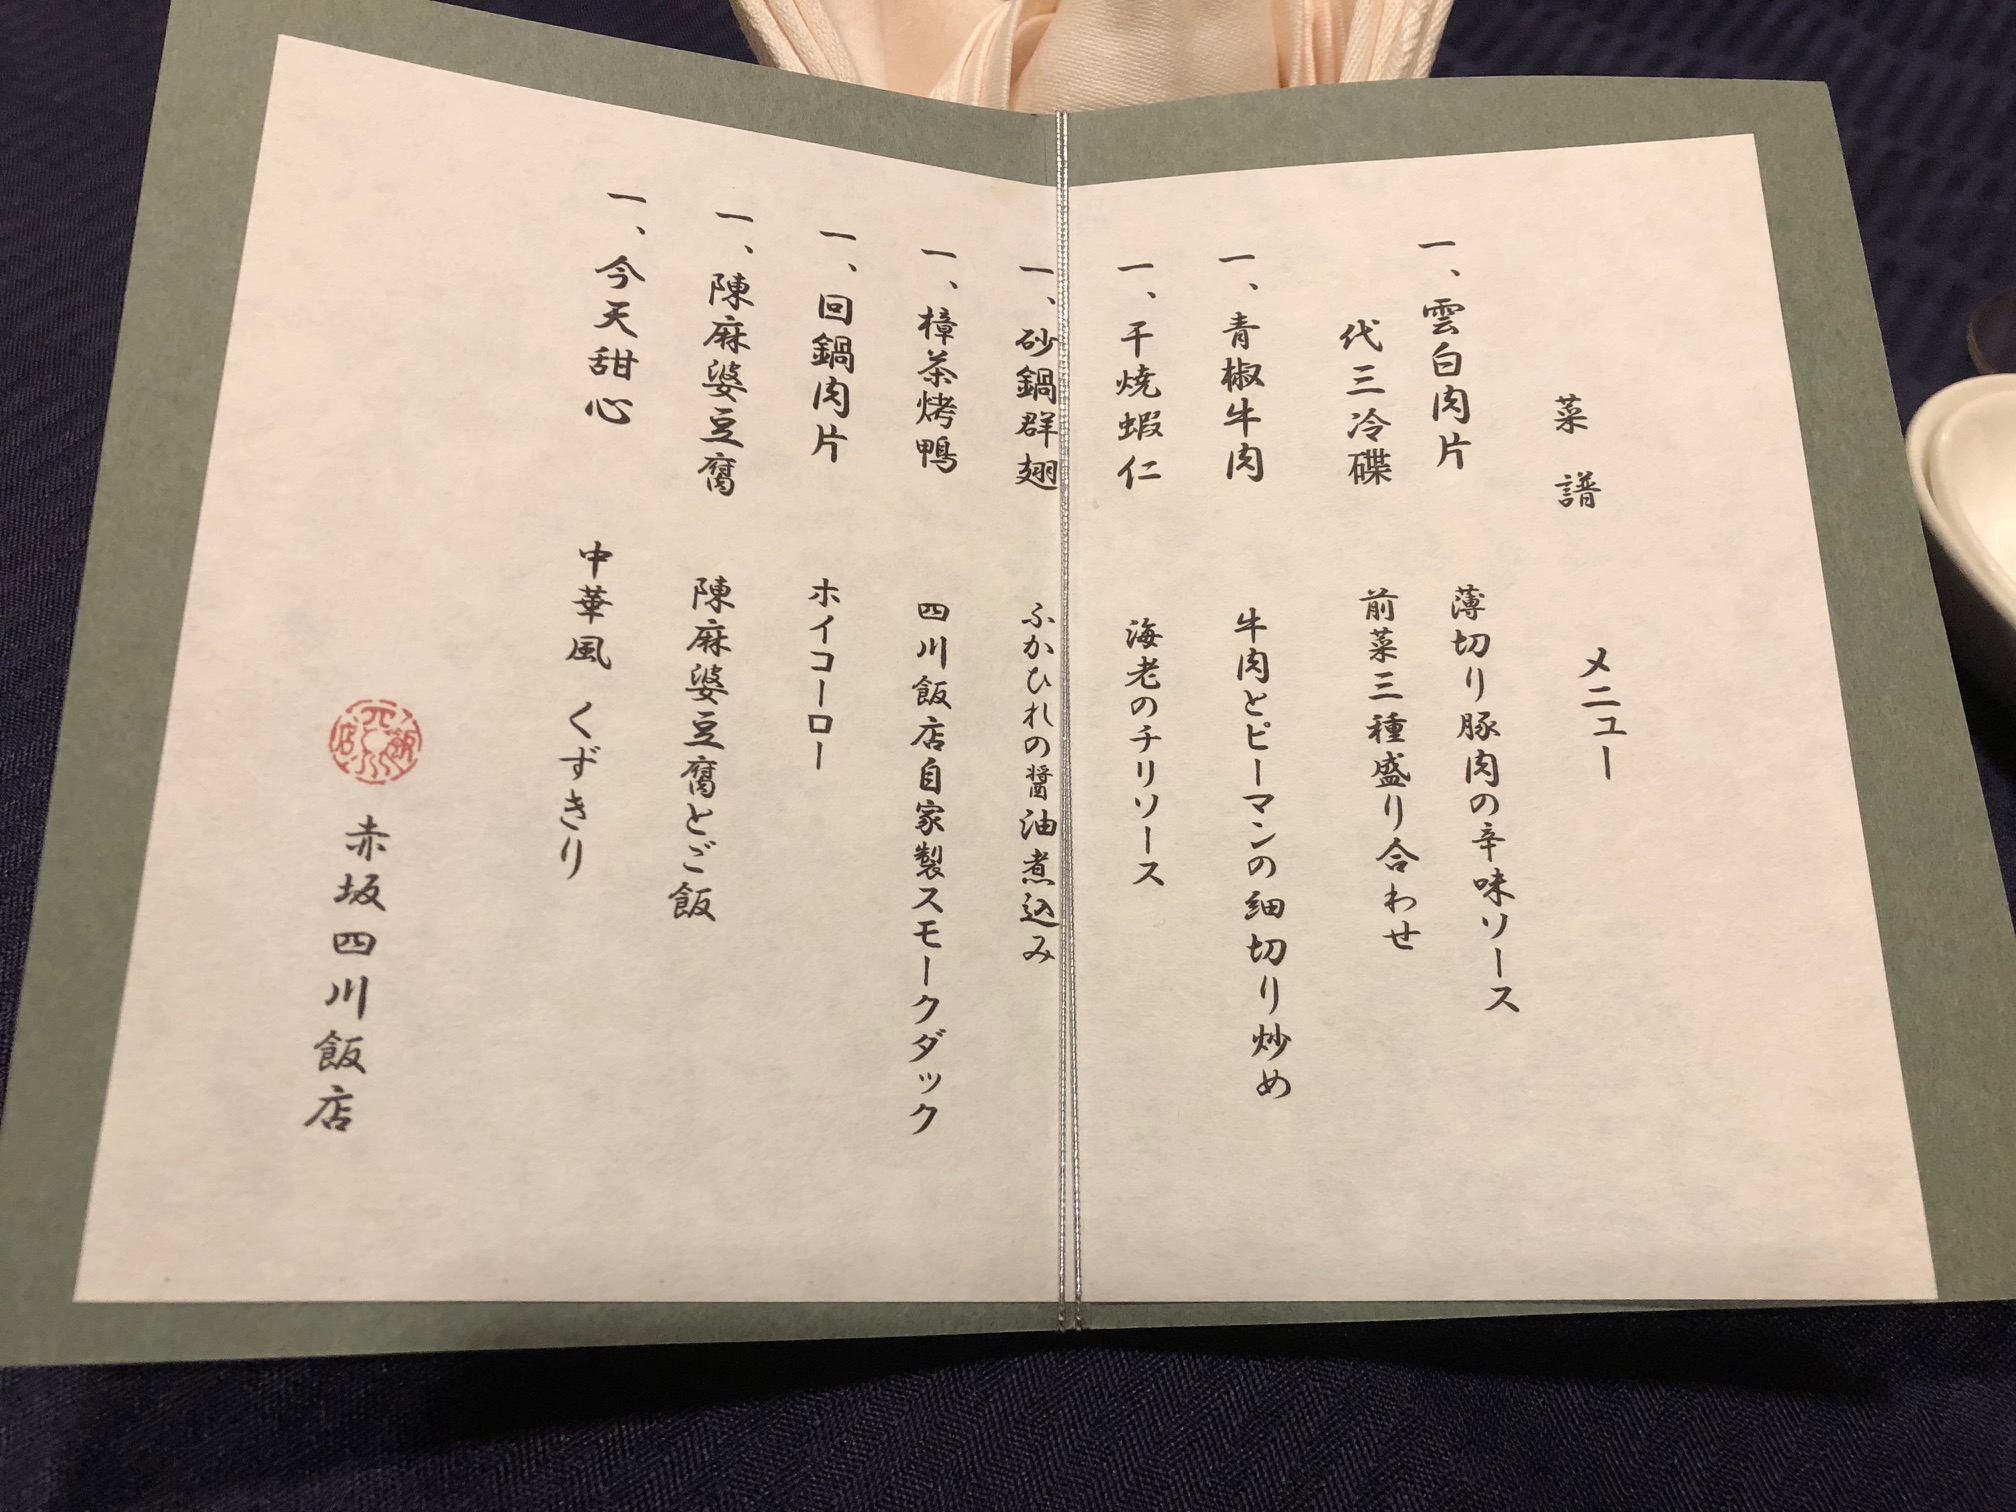 菜譜 メニュー
一、雲白肉片 薄切り豚肉の辛味ソース
代三冷碟 前菜三種盛り合わせ
一、青椒牛肉 牛肉とピーマンの細切り炒め
一、干焼蝦仁 海老のチリソース
一、砂鍋群翅 ふかひれの醤油煮込み
一、樟茶烤鴨 四川飯店自家製スモークダック
一、回鍋肉片 ホイコーロー
一、陳麻婆豆腐 陳麻婆豆腐とご飯
一、今天甜心 中華風 くずきり
赤坂四川飯店